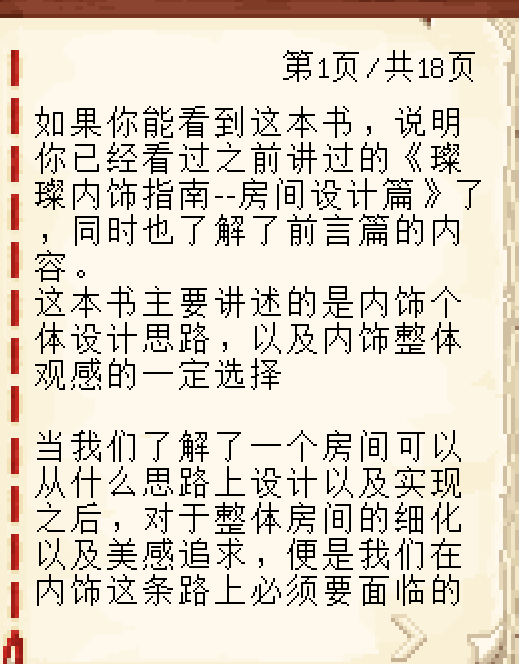 第1页/共18页
如果你能看到这本书，说明
你已经看过之前讲过的《璨
璨内饰指南--房间设计篇》了
，同时也了解了前言篇的内
容。
这本书主要讲述的是内饰个
体设计思路，以及内饰整体
观感的一定选择
当我们了解了一个房间可以
从什么思路上设计以及实现
之后，对于整体房间的细化
以及美感追求，便是我们在
内饰这条路上必须要面临的